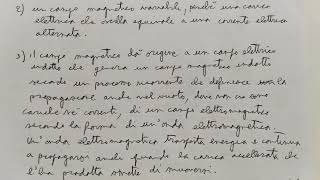 2) un campo magnetico variabile, perché una carica
elettrica che oscilla equivale a una corrente elettrica
alternata.
3) il campo magnetico dà origine a un campo elettrico
indotto che genera un campo magnetico indotto
secondo un processo ricorrente che definisce la
propagazione anche nel vuoto, dove non ci sono
cariche né correnti, di un campo elettromagnetico
secondo la forma di un'onda elettromagnetica.
Un'onda elettromagnetica trasporta energia e continua
a propagarsi anche quando la carica accelerata che
l'ha prodotta smette di muoversi.